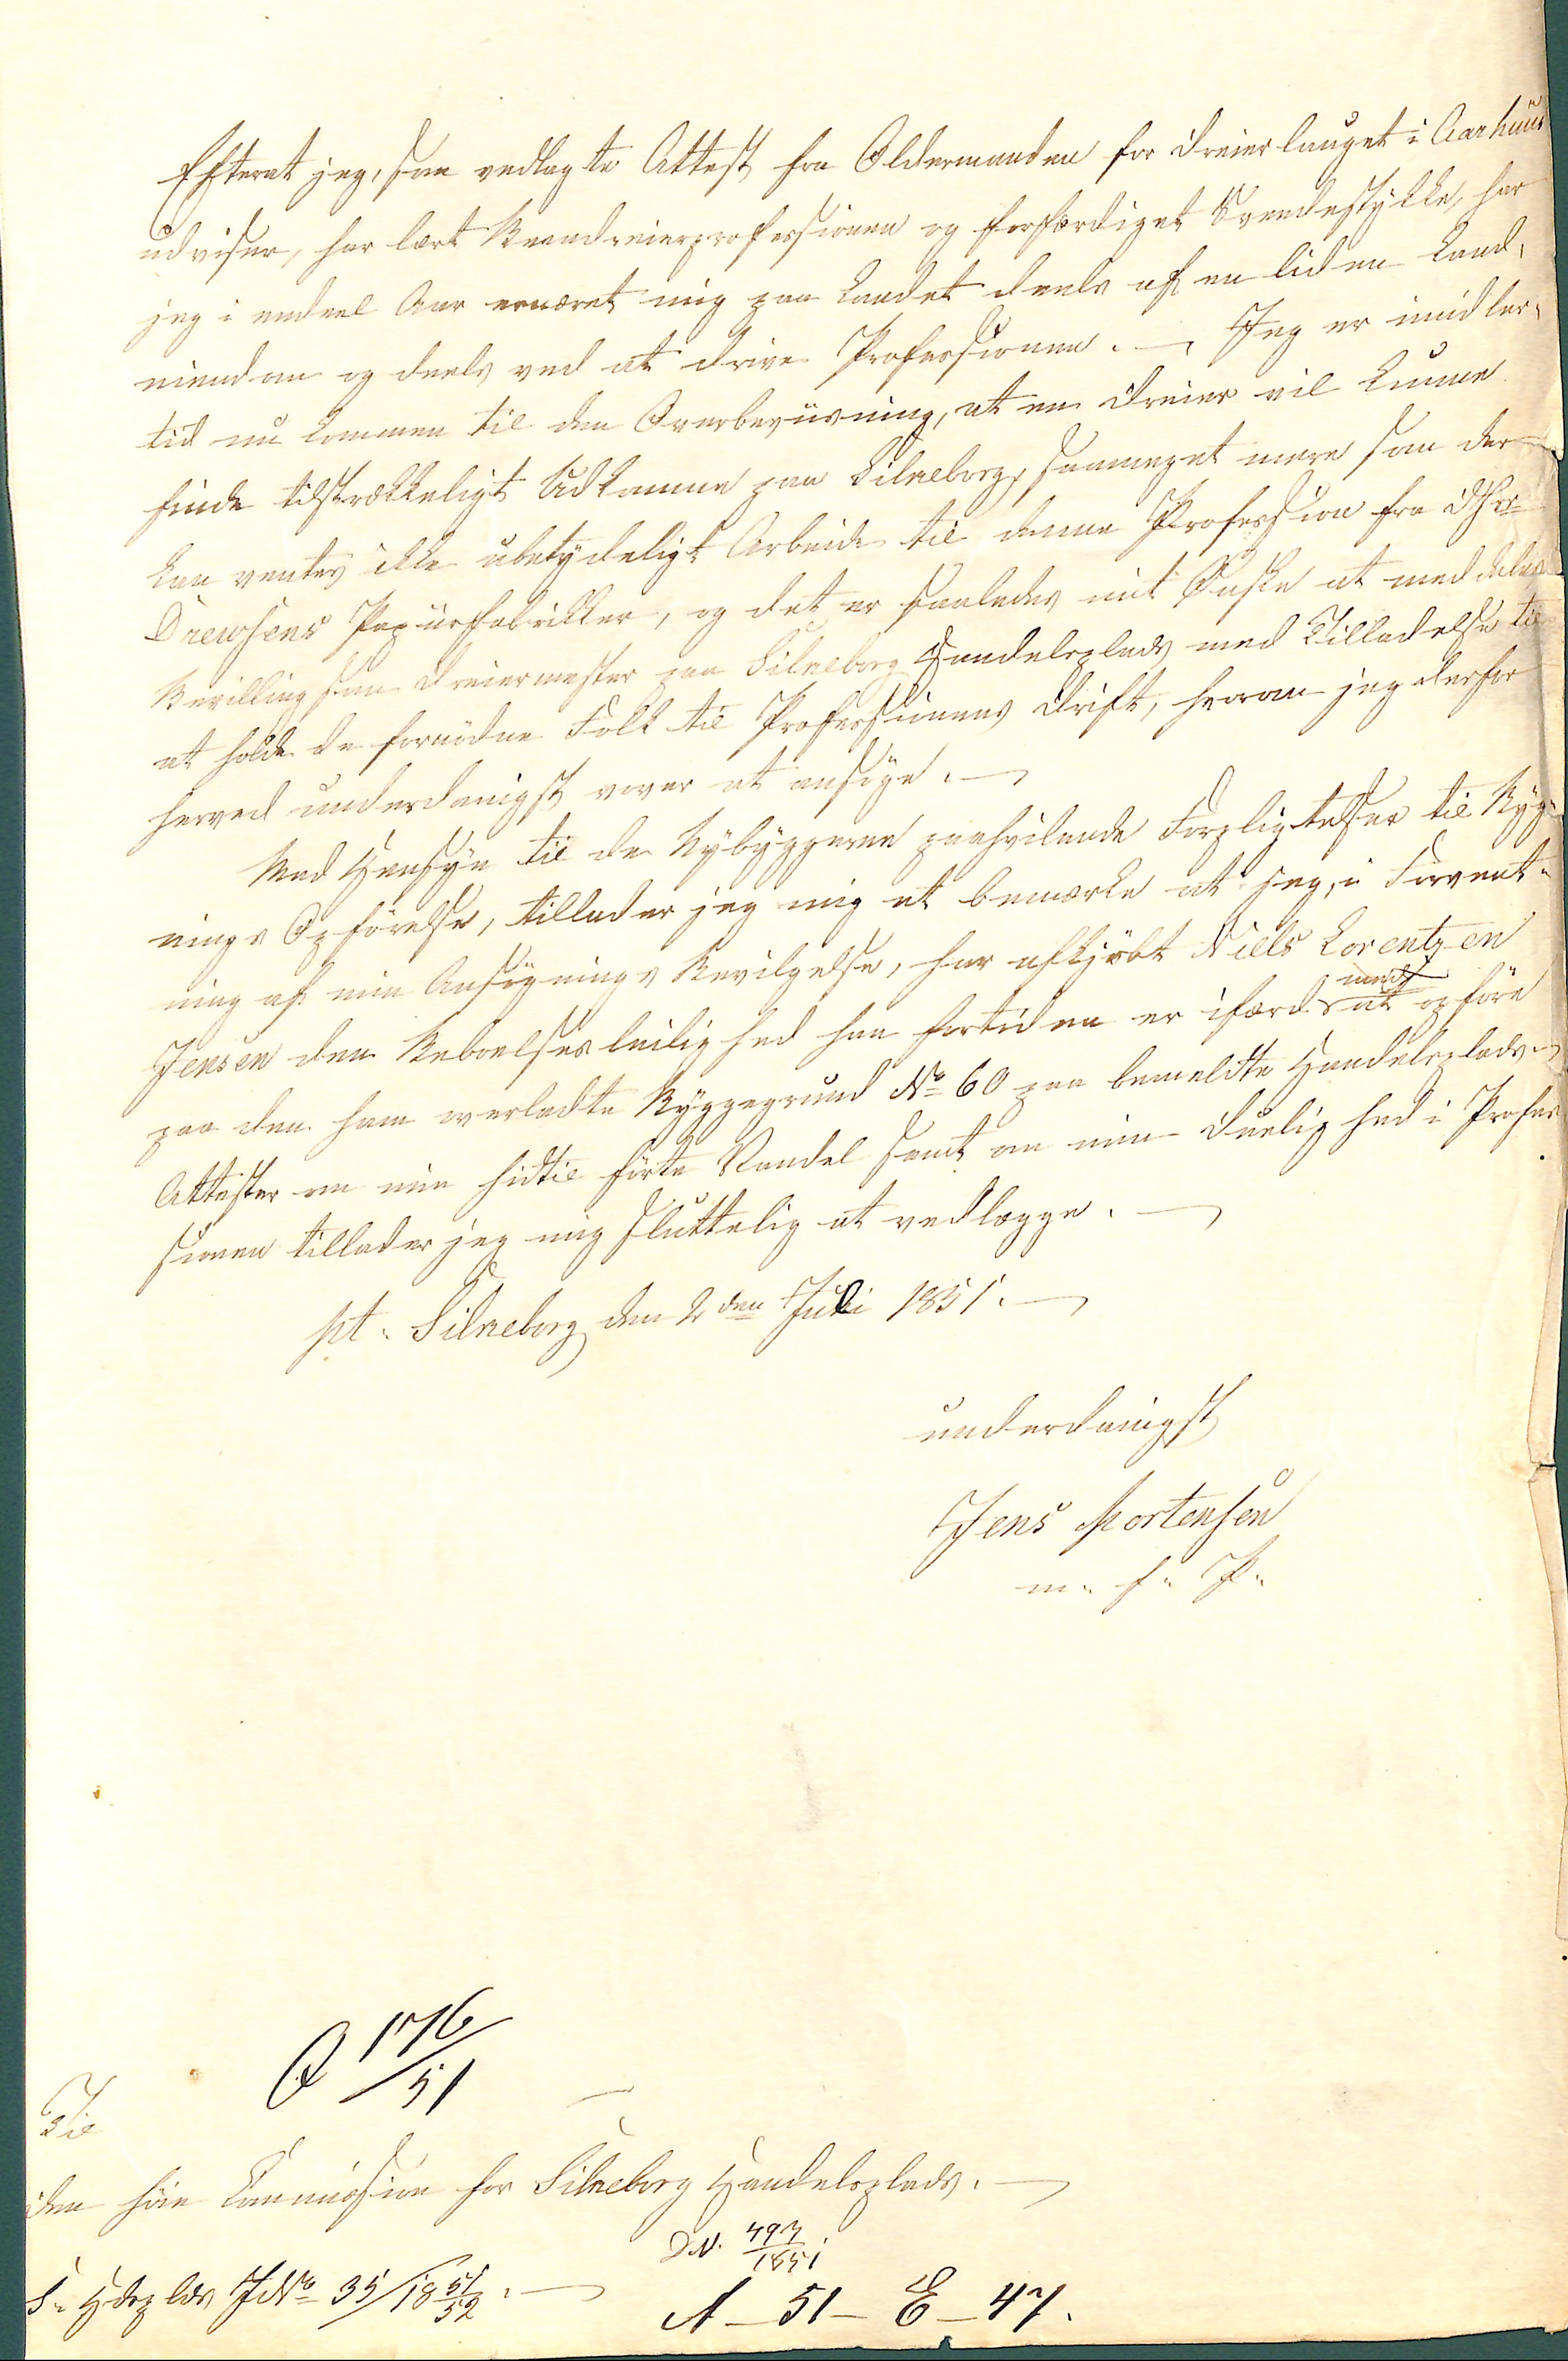 Efterat jeg, som vedlagte Attest fra Oldermanden for Dreierlauget i Aarhuus
udviser, har lært Beendreierprofessionen og forfærdiget Svendestykke, har
jeg i endeel Aar ernæret mig paa Landet deels af en liden Land,
eiendom og deels ved at drive Professionen. — Jeg er imidler,
tid nu kommen til den Overbeviisning, at en Dreier vil kunne
finde tilstrækkeligt Udkomme paa Silkeborg, saameget mere som der
kan ventes ikke ubetydeligt Arbeide til denne Profession fra DHrr
Drewsens Papiirfabrikker, og det er saaledes mit Ønske at meddeles
Bevilling som Dreiermester paa Silkeborg Handelsplads med Tilladelse til
at holde de fornødne Folk til Professionens Drift, hvorom jeg derfor
herved underdanigst vover at ansøge. —
Med Hensyn til de Nybyggerne paahvilende Forpligtelser til Byg-
nings Opførelse, tillader jeg mig at bemærke at jeg, i Forvent-
ning af min Ansøgnings Bevilgelse, har afkjøbt Niels Lorentzen
Jensen den Beboelsesleilighed han fortiden er ifærd med at opføre
paa den ham overladte Byggegrund No 60 paa bemeldte Handelsplads. —
Attester om min hidtil førte Vandel samt om min Duelighed i Profes
sionen tillader jeg mig sluttelig at vedlægge. —
pt. Silkeborg den 2den Juli 1851. —
underdanigst
Jens Mortensen
m. f. P.
O 176/51
Til
den høie Commission for Silkeborg Handelsplads. —
D.N. 497/1851
S. Hdsplds J No 35/18 51/52. —
A — 51 — E — 47.